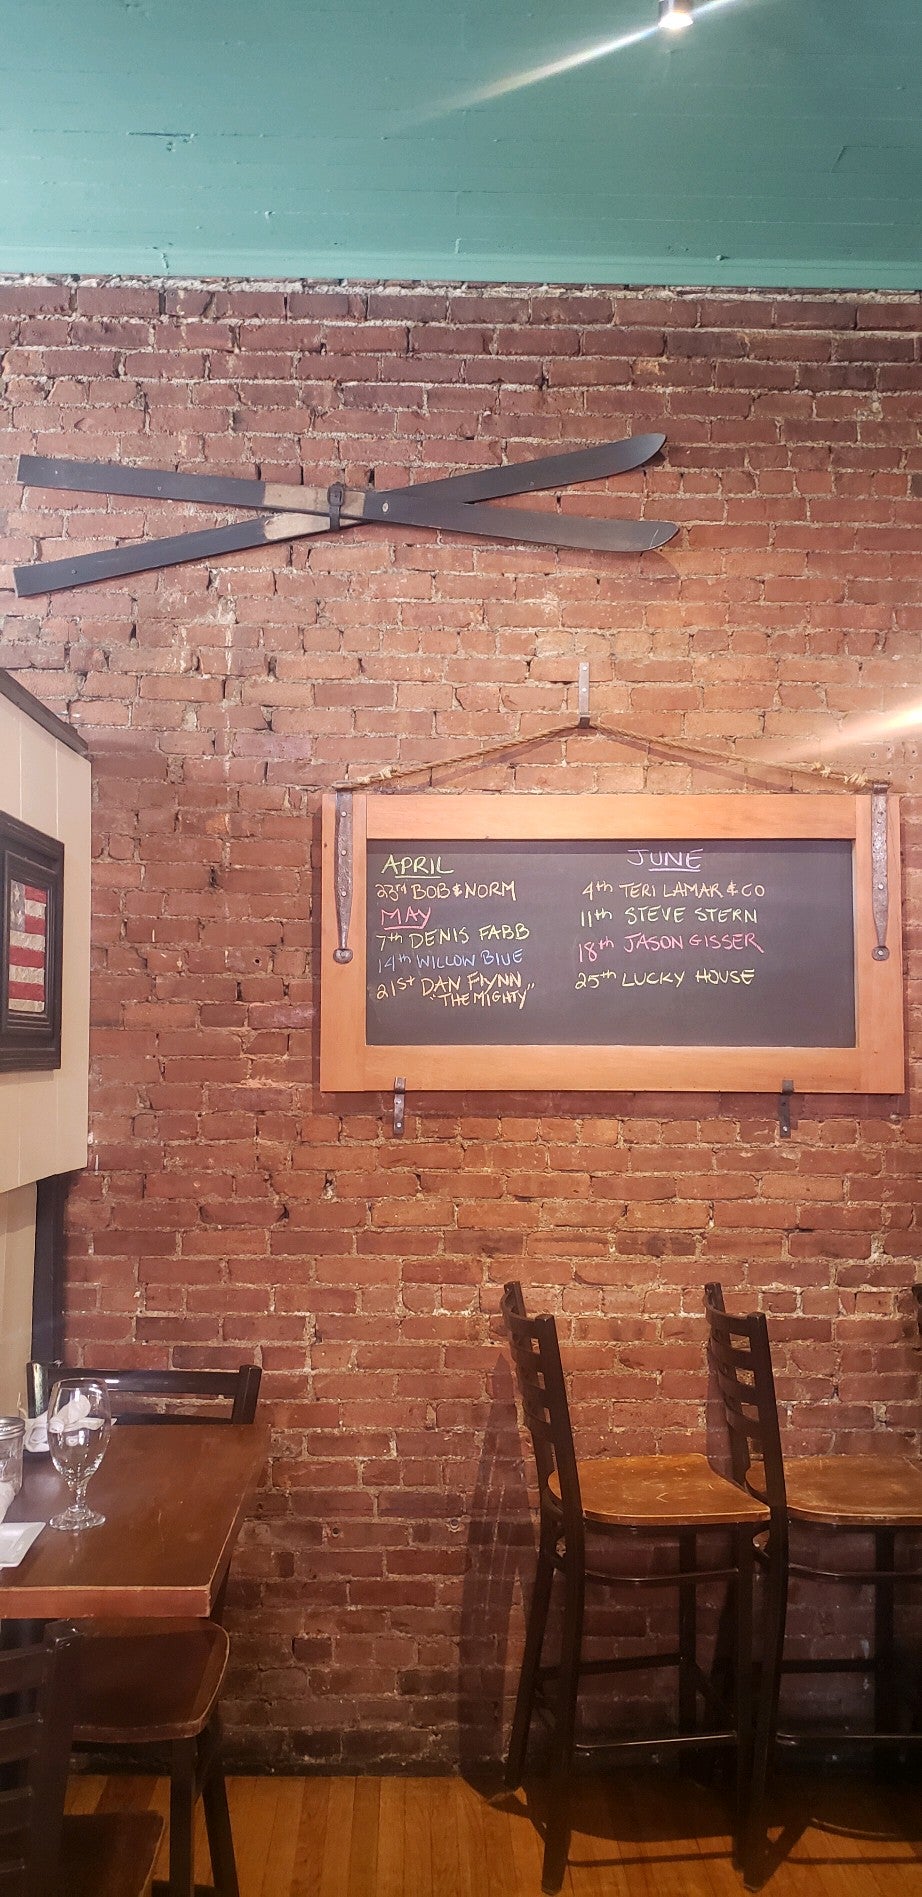 APRIL
23rd BOB & NORM
MAY
7th DENIS FABB
14th WILLOW BLUE
21st DAN FLYNN
"THE MIGHTY"
JUNE
4th TERI LAMAR & CO
11th STEVE STERN
18th JASON GISSER
25th LUCKY HOUSE